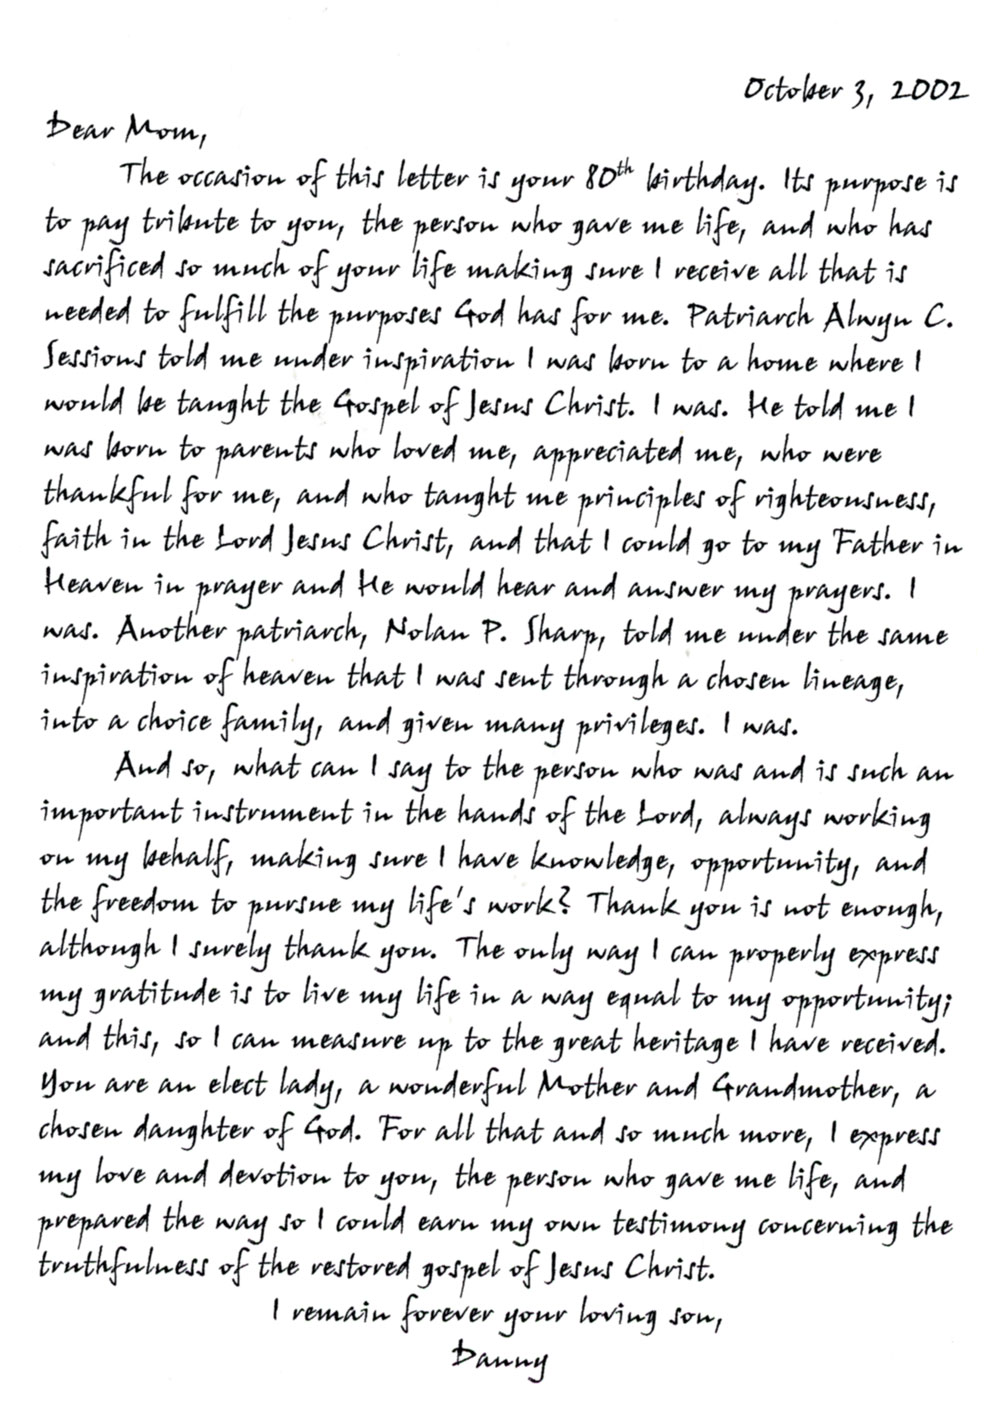 October 3, 2002
Dear Mom,
The occasion of this letter is your 80th birthday. Its purpose is
to pay tribute to you, the person who gave me life, and who has
sacrificed so much of your life making sure I receive all that is
needed to fulfill the purposes God has for me. Patriarch Alwyn C.
Sessions told me under inspiration I was born to a home where I
would be taught the Gospel of Jesus Christ. I was. He told me I
was born to parents who loved me, appreciated me, who were
thankful for me, and who taught me principles of righteousness,
faith in the Lord Jesus Christ, and that I could go to my Father in
Heaven in prayer and He would hear and answer my prayers. I
was. Another patriarch, Nolan P. Sharp, told me under the same
inspiration of heaven that I was sent through a chosen lineage,
into a choice family, and given many privileges. I was.
And so, what can I say to the person who was and is such an
important instrument in the hands of the Lord, always working
on my behalf, making sure I have knowledge, opportunity, and
the freedom to pursue my life's work? Thank you is not enough,
although I surely thank you. The only way I can properly express
my gratitude is to live my life in a way equal to my opportunity;
and this, so I can measure up to the great heritage I have received.
You are an elect lady, a wonderful Mother and Grandmother, a
chosen daughter of God. For all that and so much more, I express
my love and devotion to you, the person who gave me life, and
prepared the way so I could earn my own testimony concerning the
truthfulness of the restored gospel of Jesus Christ.
I remain forever your loving son,
Danny